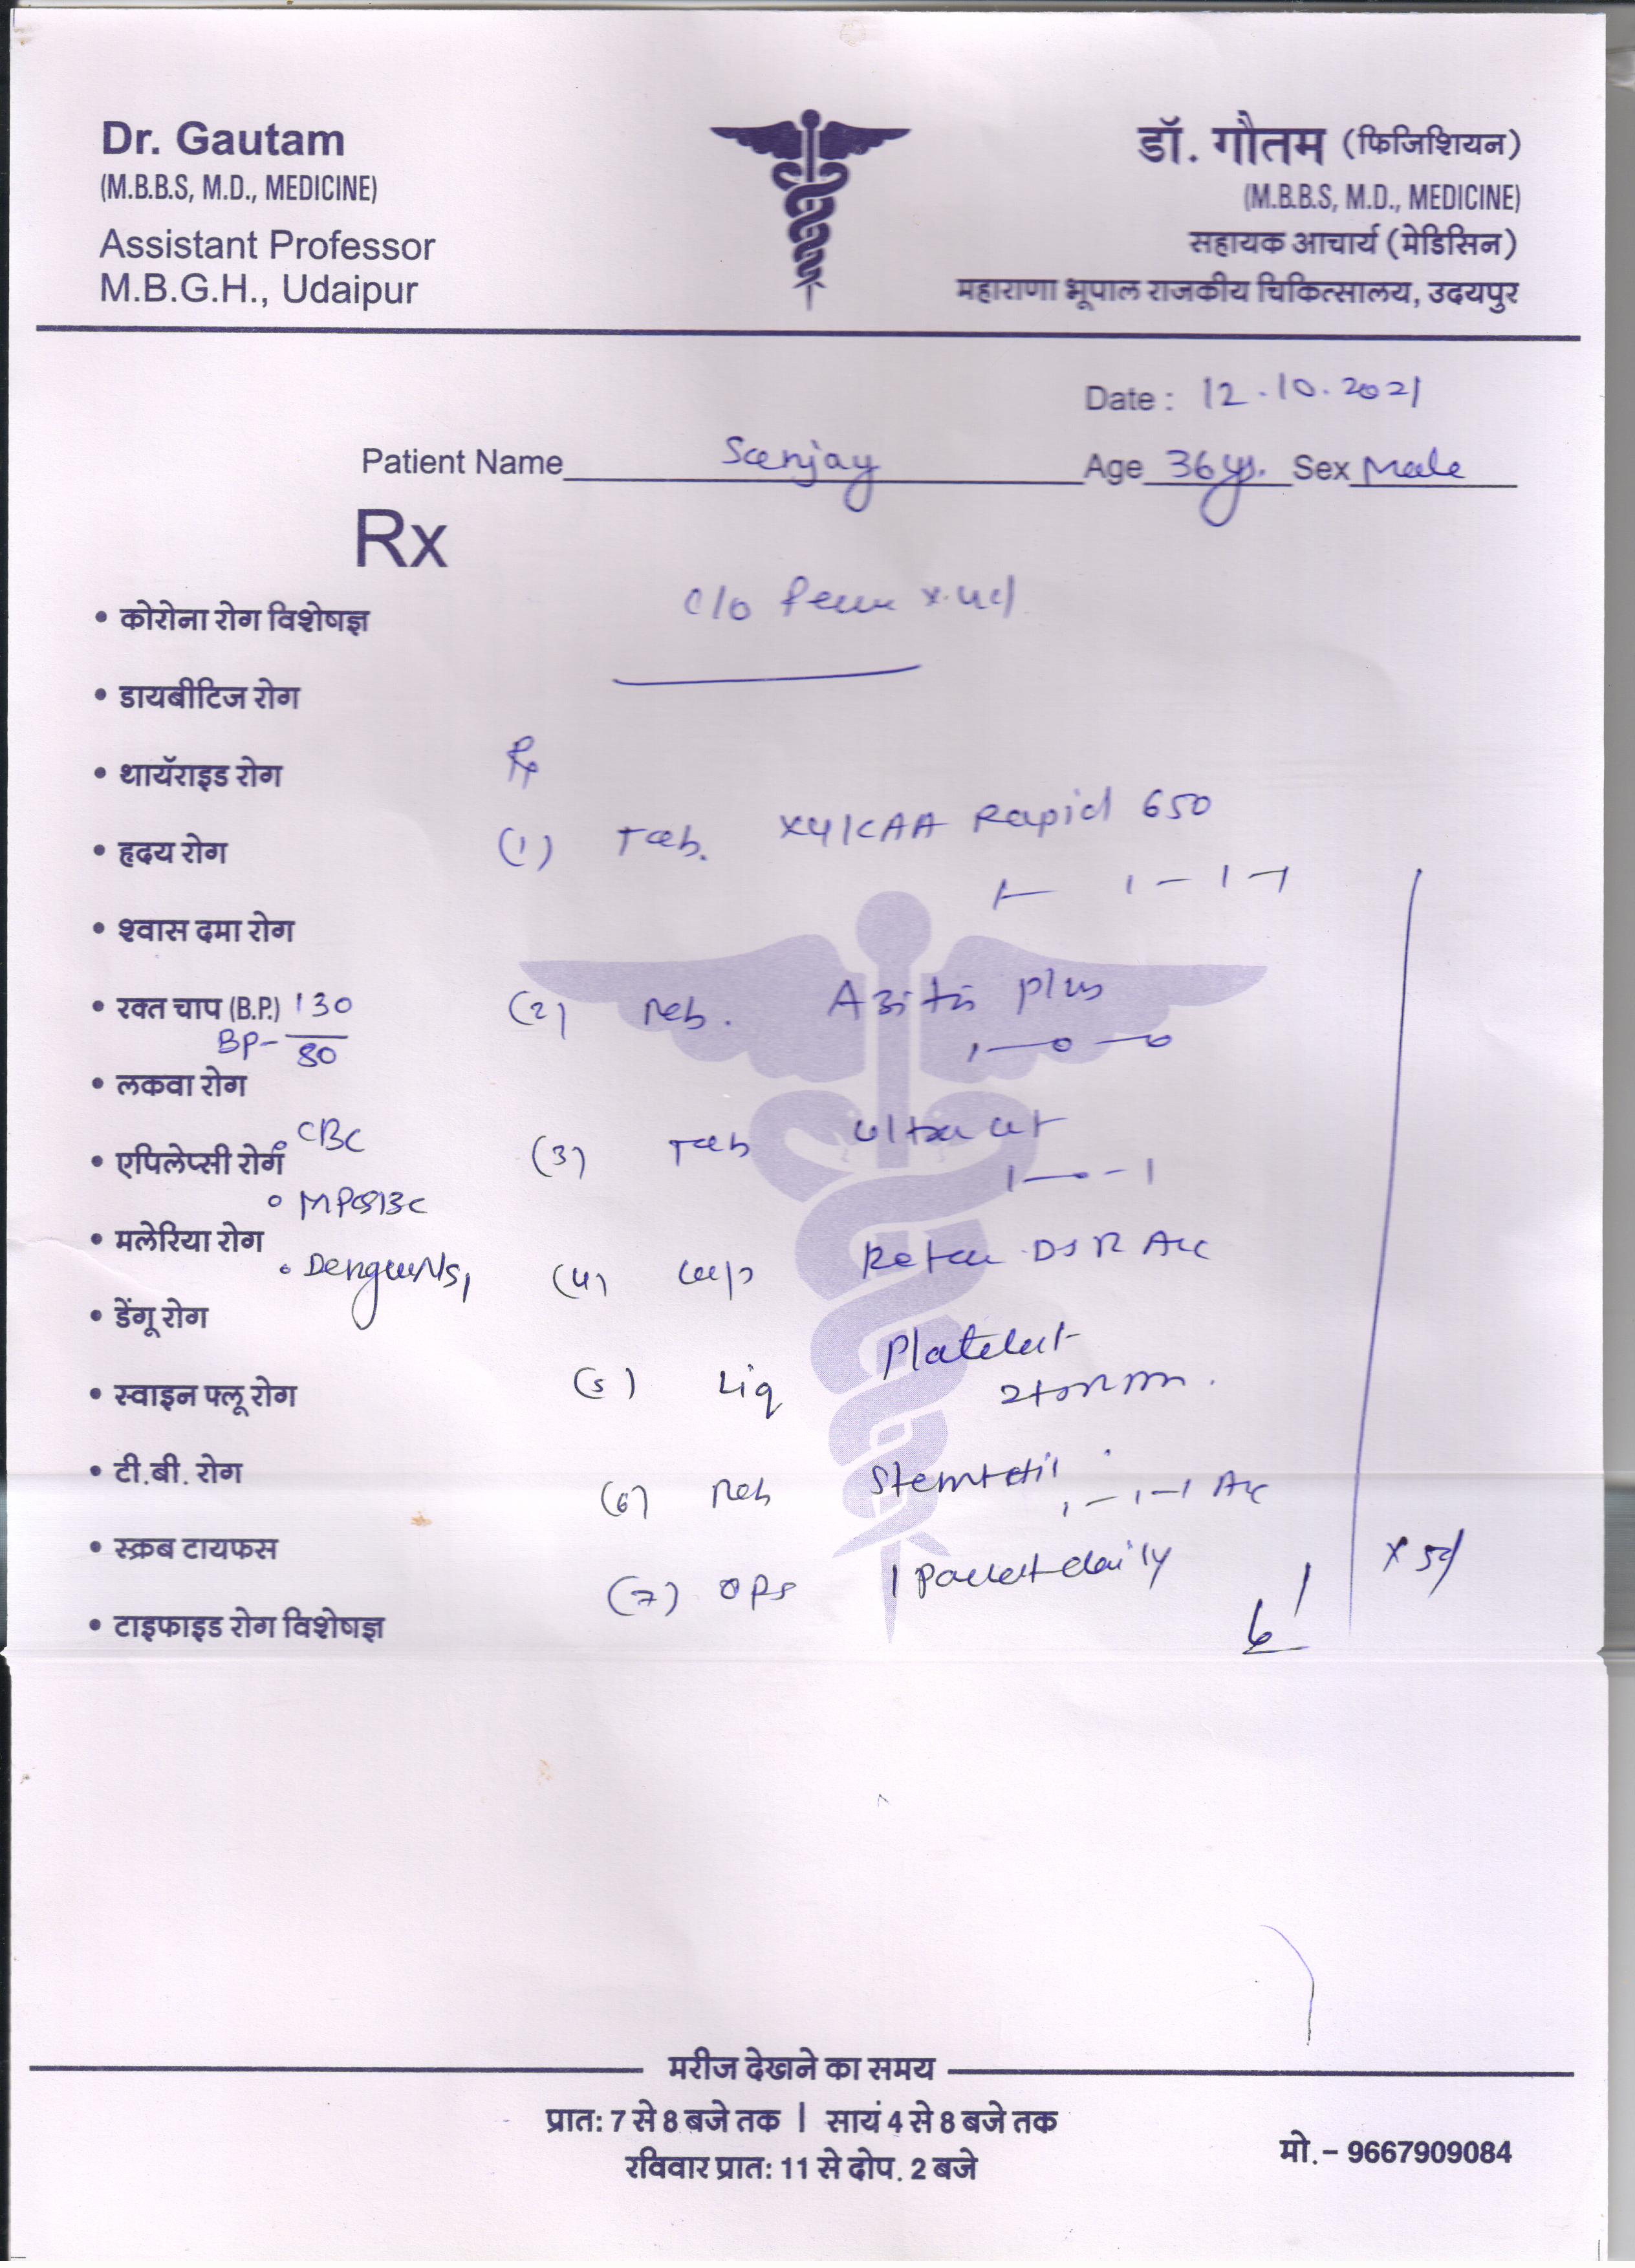 Dr. Gautam
(M.B.B.S, M.D., MEDICINE)
Assistant Professor
M.B.G.H., Udaipur
डॉ. गौतम (फिजिशियन)
(M.B.B.S, M.D., MEDICINE)
सहायक आचार्य (मेडिसिन)
महाराणा भूपाल राजकीय चिकित्सालय, उदयपुर
Date : 12.10.2021
Patient Name Sanjay Age 36 ys. Sex Male
Rx
c/o
• कोरोना रोग विशेषज्ञ
• डायबीटिज रोग
• थायॅराइड रोग
• हृदय रोग
• श्वास दमा रोग
• रक्त चाप (B.P.) 130
BP- 80
• लकवा रोग
CBC
• एपिलेप्सी रोग
• मलेरिया रोग
• डेंगू रोग
• स्वाइन फ्लू रोग
• टी.बी. रोग
• स्क्रब टायफस
• टाइफाइड रोग विशेषज्ञ
(1) Tab. Rapid 650
1 - 1 - 1 - 1
(2) Tab. plus
1 - 0 - 0
(3) Tab
1 - 0 - 1
(4) Cap DSR
(5) Liq
(6) Tab Stemetil
1 - 1 - 1
(7) 1 packet daily
x 5d
मरीज देखाने का समय
प्रात: 7 से 8 बजे तक | सायं 4 से 8 बजे तक
रविवार प्रात: 11 से दोप. 2 बजे
मो.– 9667909084